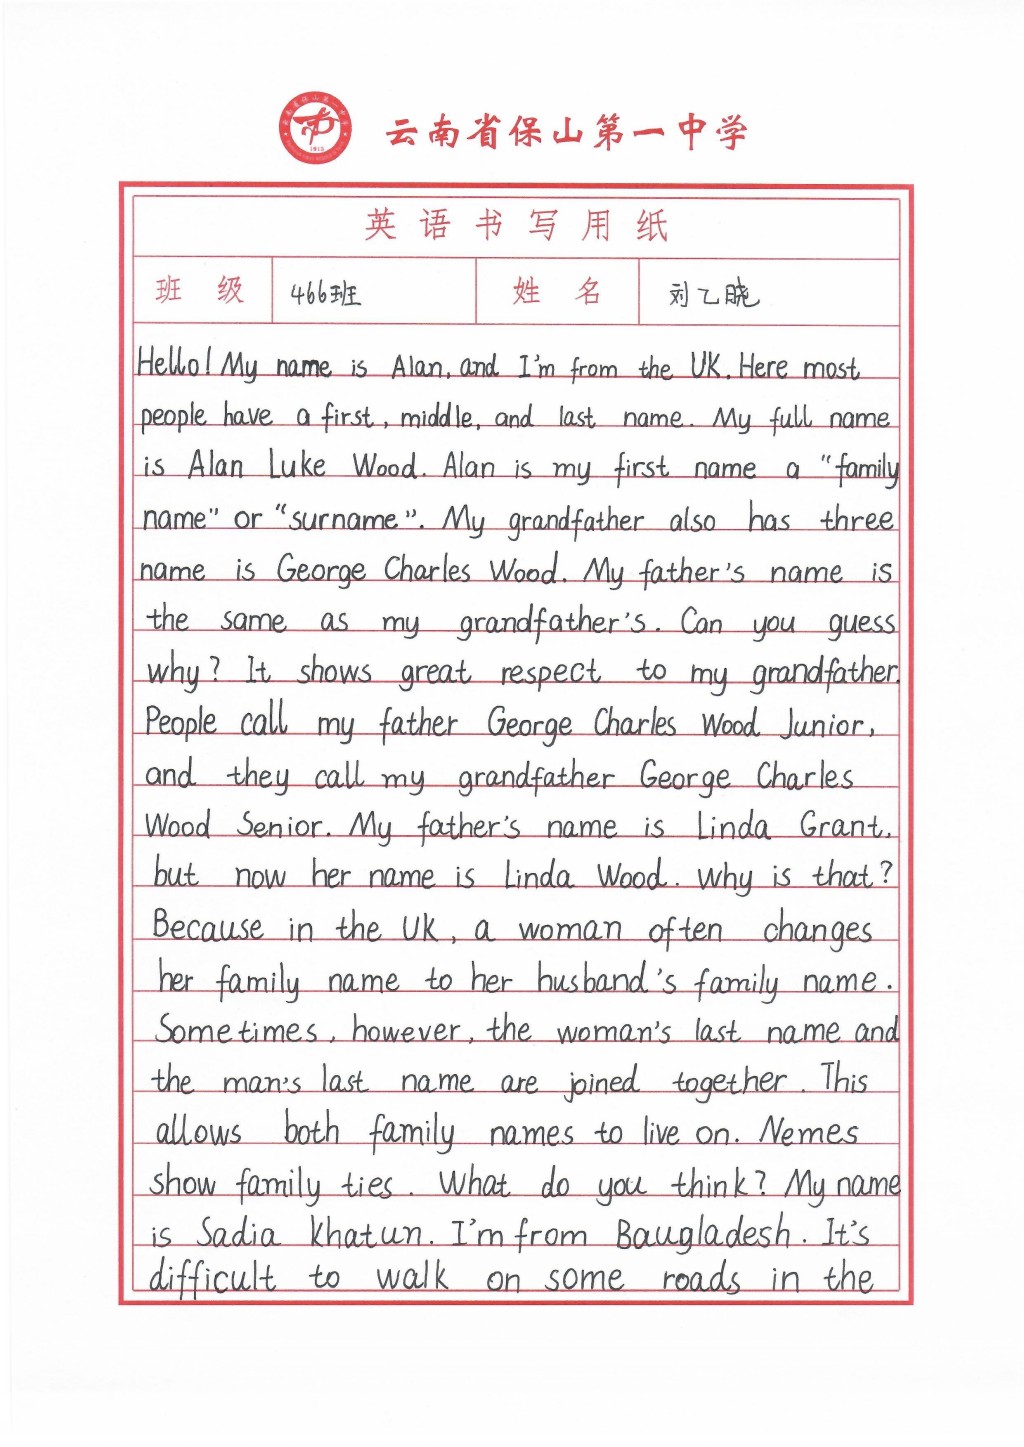 云南省保山第一中学
1912
英语书写用纸
班级 466班 姓名 刘乙晓
Hello! My name is Alan, and I'm from the UK. Here most
people have a first, middle, and last name. My full name
is Alan Luke Wood. Alan is my first name a "family
name" or "surname". My grandfather also has three
name is George Charles Wood. My father's name is
the same as my grandfather's. Can you guess
why? It shows great respect to my grandfather.
People call my father George Charles Wood Junior,
and they call my grandfather George Charles
Wood Senior. My father's name is Linda Grant,
but now her name is Linda Wood. Why is that?
Because in the UK, a woman often changes
her family name to her husband's family name.
Sometimes, however, the woman's last name and
the man's last name are joined together. This
allows both family names to live on. Nemes
show family ties. What do you think? My name
is Sadia Khatun. I'm from Baugladesh. It's
difficult to walk on some roads in the